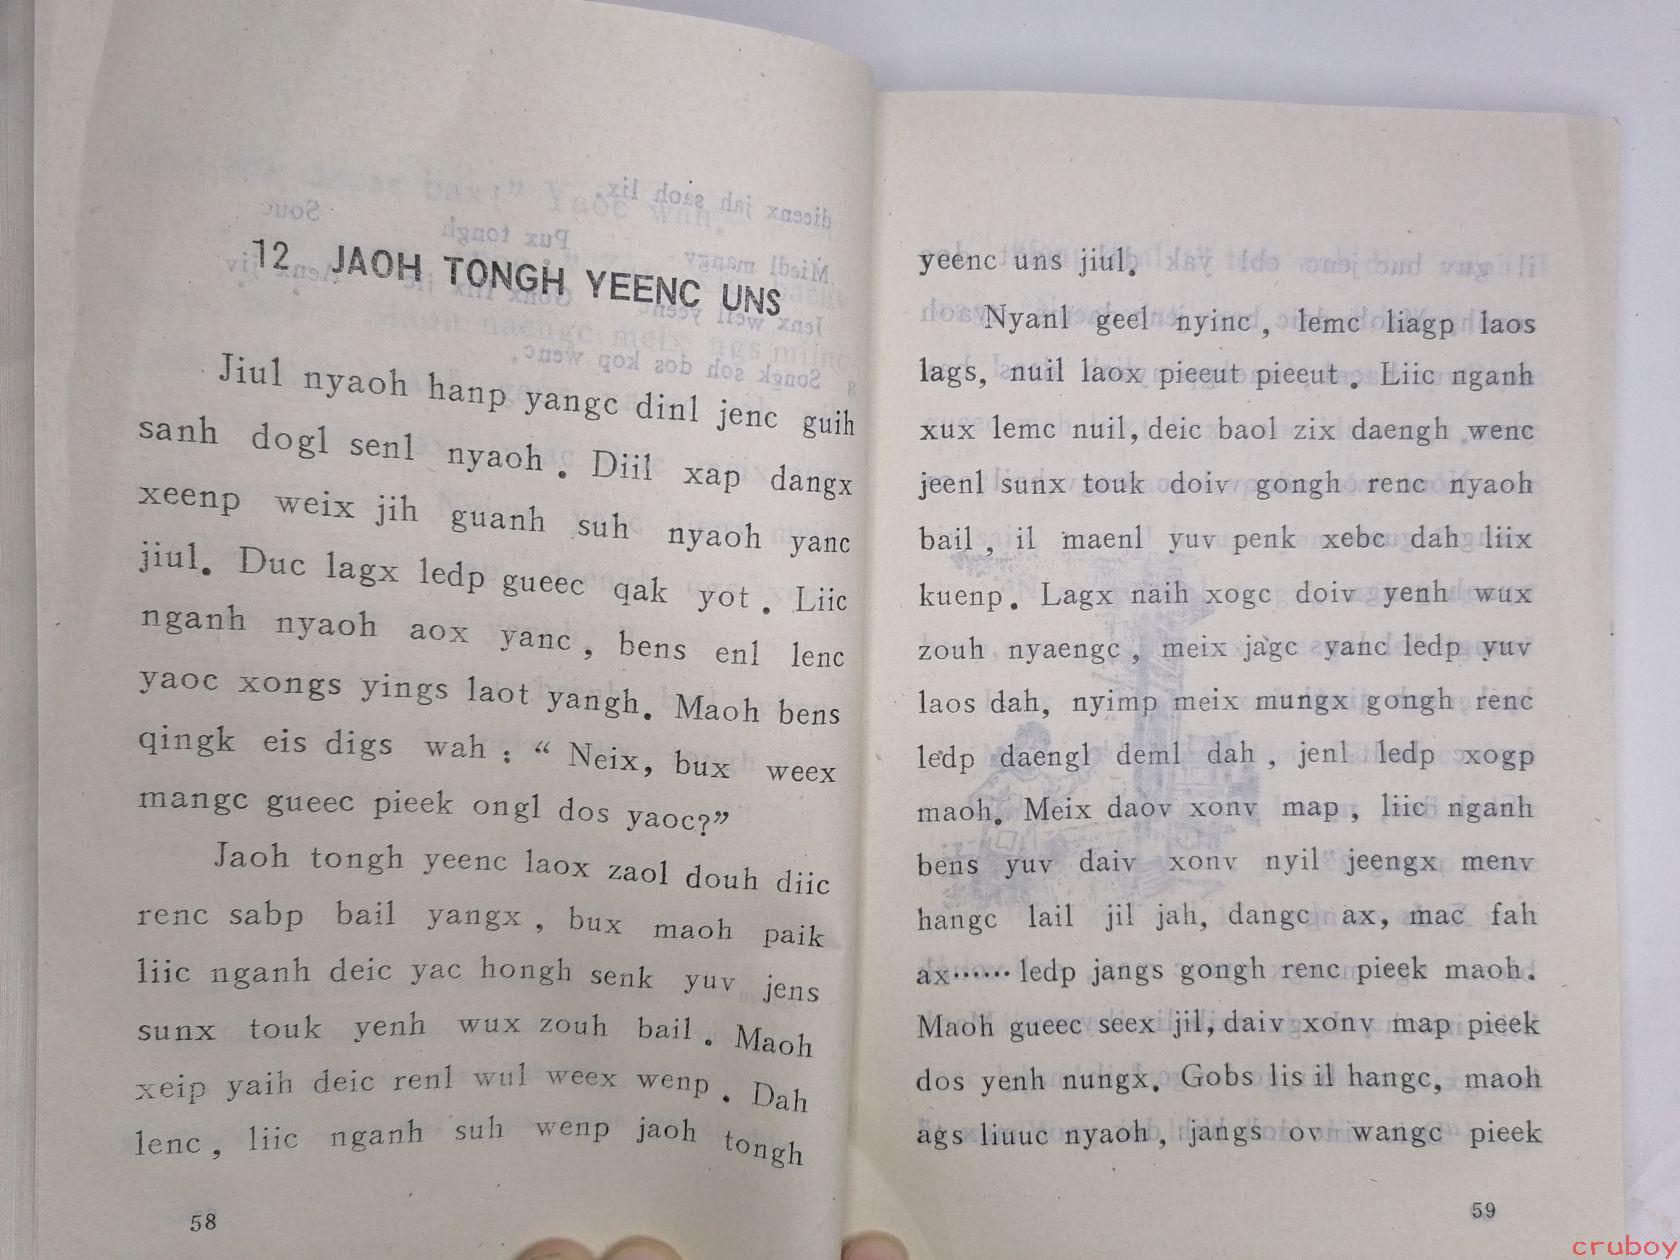 12 JAOH TONGH YEENC UNS
Jiul nyaoh hanp yangc dinl jenc guih
sanh dogl senl nyaoh. Diil xap dangx
xeenp weix jih guanh suh nyaoh yanc
jiul. Duc lagx ledp gueec qak yot. Liic
nganh nyaoh aox yanc, bens enl lenc
yaoc xongs yings laot yangh. Maoh bens
qingk eis digs wah: “Neix, bux weex
mangc gueec pieek ongl dos yaoc?”
Jaoh tongh yeenc laox zaol douh diic
renc sabp bail yangx, bux maoh paik
liic nganh deic yac hongh senk yuv jens
sunx touk yenh wux zouh bail. Maoh
xeip yaih deic renl wul weex wenp. Dah
lenc, liic nganh suh wenp jaoh tongh
58
yeenc uns jiul.
Nyanl geel nyinc, lemc liagp laos
lags, nuil laox pieeut pieeut. Liic nganh
xux lemc nuil, deic baol zix daengh wenc
jeenl sunx touk doiv gongh renc nyaoh
bail, il maenl yuv penk xebc dah liix
kuenp. Lagx naih xogc doiv yenh wux
zouh nyaengc, meix jagc yanc ledp yuv
laos dah, nyimp meix mungx gongh renc
ledp daengl deml dah, jenl ledp xogp
maoh. Meix daov xonv map, liic nganh
bens yuv daiv xonv nyil jeengx menv
hangc lail jil jah, dangc ax, mac fah
ax······ledp jangs gongh renc pieek maoh.
Maoh gueec seex jil, daiv xonv map pieek
dos yenh nungx. Gobs lis il hangc, maoh
ags liuuc nyaoh, jangs ov wangc pieek
59
cruboy